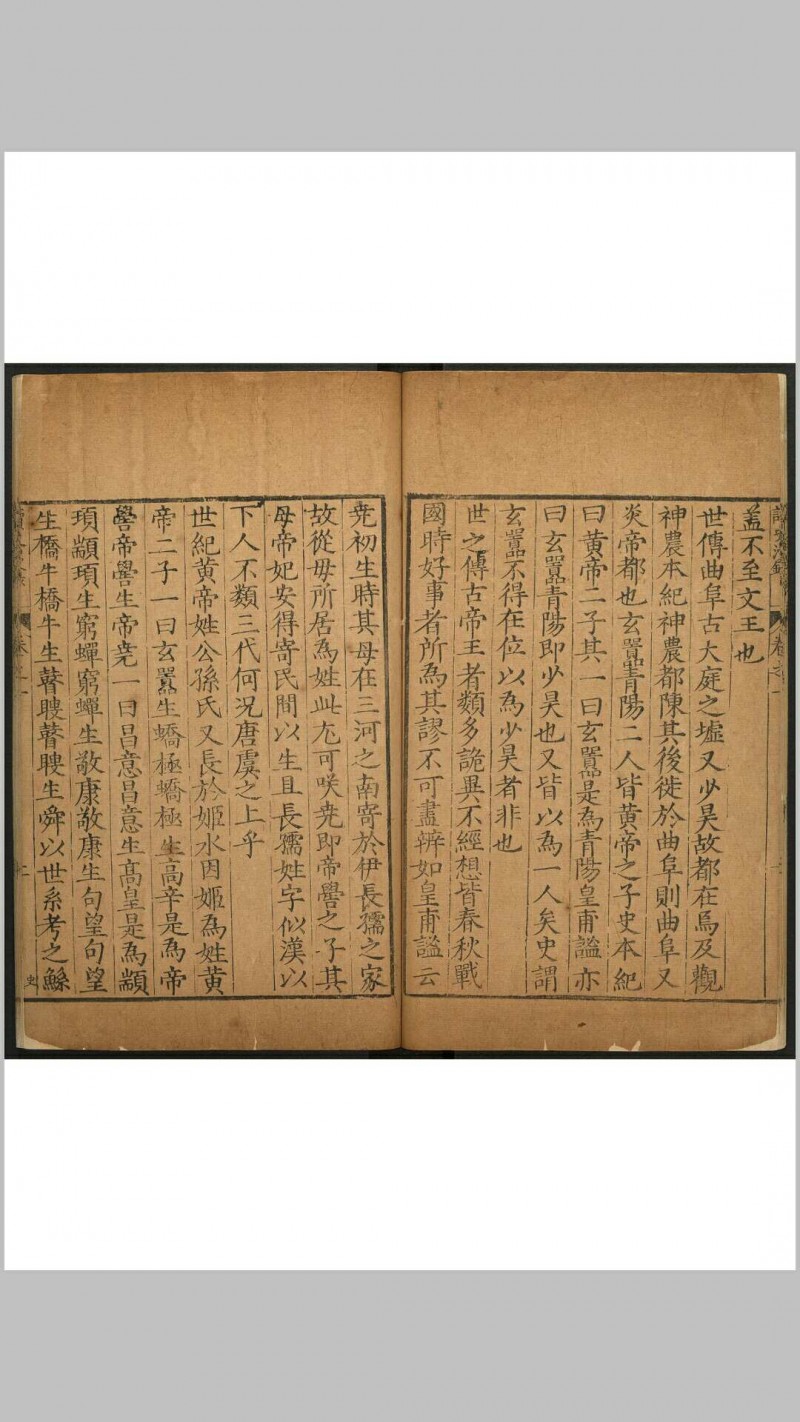 蓋不至文王也
世傳曲阜古大庭之墟又少昊故都在焉及觀
神農本紀神農都陳其後徙於曲阜則曲阜又
炎帝都也玄囂青陽二人皆黄帝之子史本紀
曰黄帝二子其一曰玄囂是為青陽皇甫謐亦
曰玄囂青陽即少昊也又皆以為一人矣史謂
玄囂不得在位以為少昊者非也
世之傳古帝王者類多詭異不經想皆春秋戰
國時好事者所為其謬不可盡辨如皇甫謐云
尭初生時其母在三河之南寄於伊長孺之家
故從母所居為姓此尤可咲尭即帝嚳之子其
母帝妃安得寄民間以生且長孺姓字似漢以
下人不類三代何况唐虞之上乎
世紀黄帝姓公孫氏又長於姬水因姬為姓黄
帝二子一曰玄囂生蟜極蟜極生高辛是為帝
嚳帝嚳生帝尭一曰昌意昌意生髙皇是為顓
頊顓頊生窮蟬窮蟬生敬康敬康生句望句望
生橋牛橋牛生瞽瞍瞽瞍生舜以世系考之鯀
卷之一
二